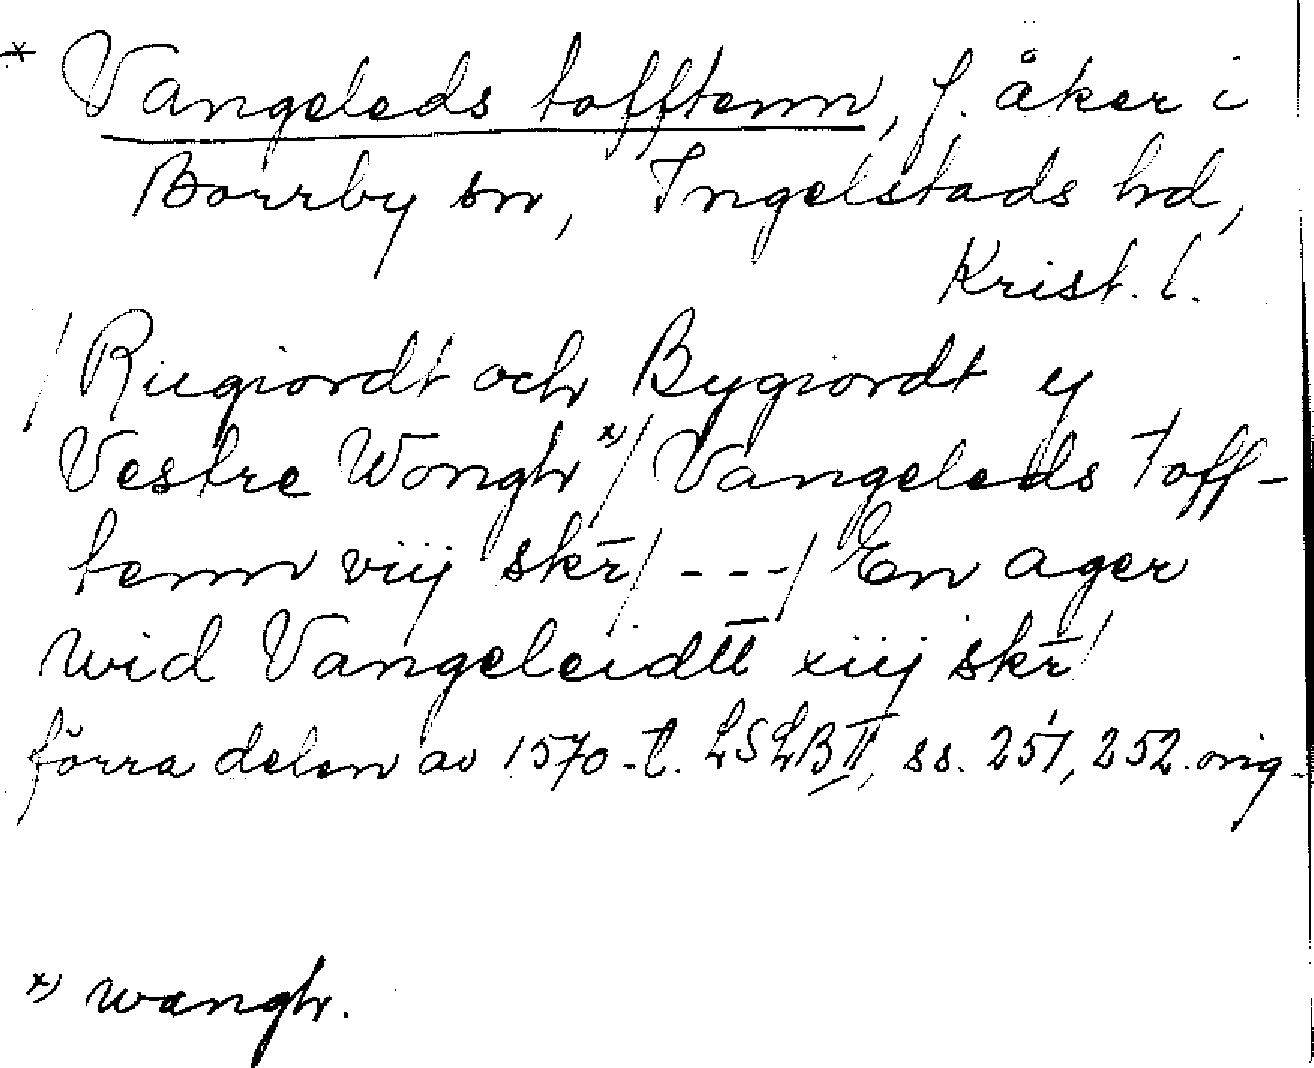 * Vangeleds tofftenn, f. åker i
Borrby sn, Ingelstads hd,
Krist. l.
/ Rugiordt och Bygiordt y
Vestre Wongh x) / Vangeleds Toff-
tenn viij skr̄ / --- / En ager
wid Vangeleidtt xiij skr̄ /
förra delen av 1570-t. LSLB II, ss. 251, 252. orig.
x) wangh.